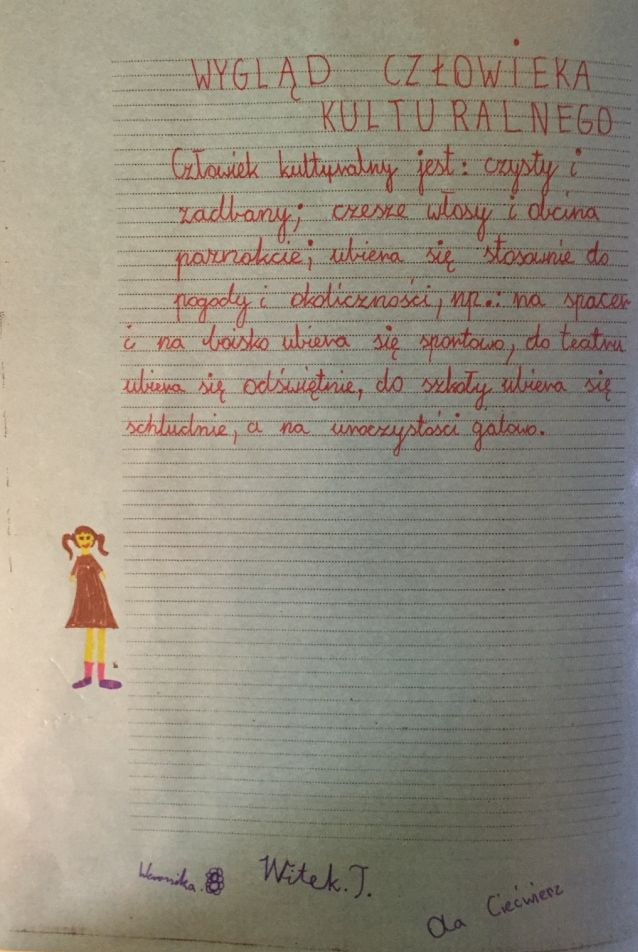 WYGLĄD CZŁOWIEKA
KULTURALNEGO
Człowiek kulturalny jest: czysty i
zadbany; czesze włosy i obcina
paznokcie; ubiera się stosownie do
pogody i okoliczności, np.: na spacer
i na boisko ubiera się sportowo, do teatru
ubiera się odświętnie, do szkoły ubiera się
schludnie, a na uroczystości galowo.
Weronika.
Witek. J.
Ola Ciećwierz